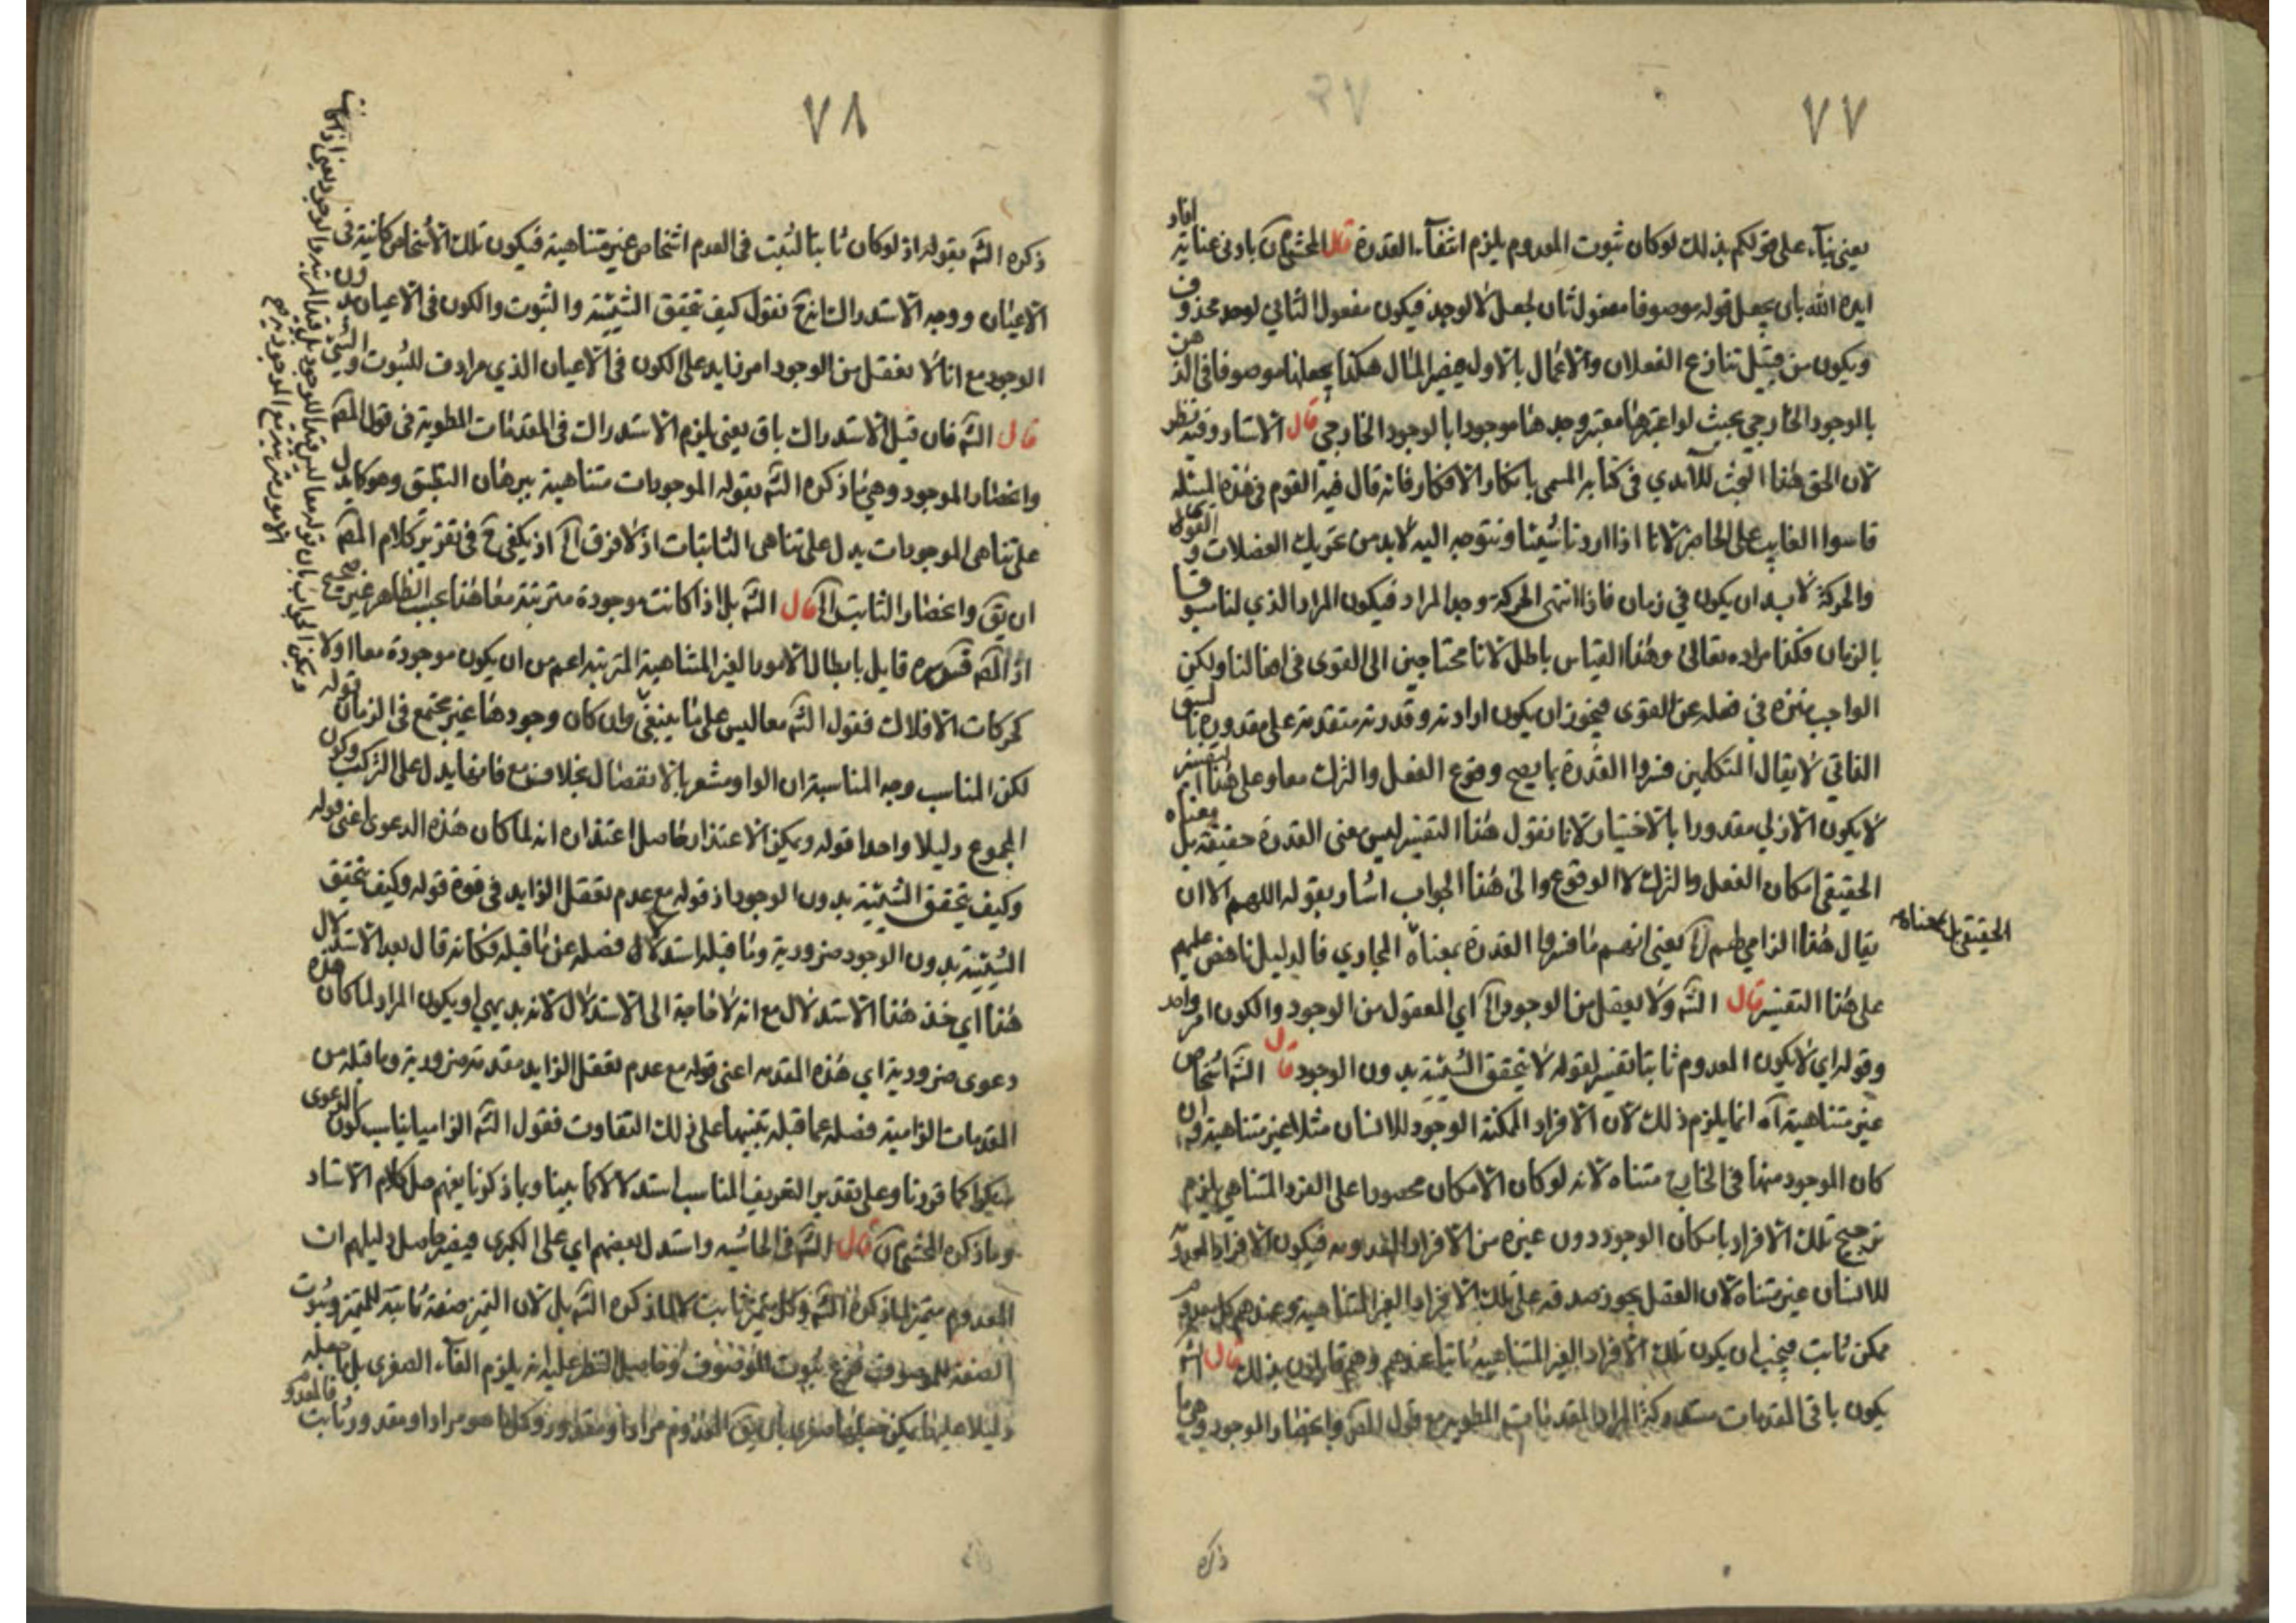 ٧٧
يعنى بناء على قولكم بذلك لو كان ثبوت المعدوم يلزم انتفاء القدرة قال المحشى بادنى عناية افاد
ايده الله بان يجعل قوله موصوفا مفعول ثان لجعل لا لوجد فيكون مفعول الثاني لوجد محذوف
ويكون من قبيل تنازع الفعلان والاعمال بالاول فيصير المثال هكذا يجعلها موصوفا في الذهن
بالوجود الخارجي بحيث لو اعتبرها معتبر وجدها موجودا بالوجود الخارجي قال الاستاد وفيه نظر
لان الحق هذا البحث للآمدي في كتابه المسمى بابكار الافكار فانه قال فيه القوم في هذه المسئله
قاسوا الغايب على الحاضر لانا اذا اردنا شيئا ونتوجه اليه لابد من تحريك العضلات و
والحركة لابد ان يكون في زمان فاذا انتهى الحركة وجد المراد فيكون المراد الذي لنا مسبوقا
بالزمان فكذا مراده تعالى وهذا القياس باطل لانا محتاجين الى القوى في افعالنا ولكن
الواجب منزه في فعله عن القوى فيجوز ان يكون ارادته وقدرته متقدمة على مقدوره بالسبق
الذاتي لا يقال المتكلمين فسروا القدرة بما يصح وقوع الفعل والترك معا وعلى هذا التفسير
لا يكون الازلي مقدورا بالاختيار لانا نقول هذا التفسير ليس معنى القدرة حقيقة بل معناه
الحقيقي امكان الفعل والترك لا الوقوع والى هذا الجواب اشار بقوله اللهم الا ان
الحقيقي بل معناه
يقال هذا الزامي لهم الخ يعنى انهم ما فسروا القدرة بمعناه المجازي فالدليل ناهض عليهم
على هذا التفسير قال الشه ولا يعقل من الوجود الخ اي المعقول من الوجود والكون امر واحد
وقوله اي لا يكون المعدوم ثابتا تفسير لقوله لا يتحقق الشيئية بدون الوجود قال الشه اشخاص
غير متناهية آه انما يلزم ذلك لان الافراد الممكنة الوجود للانسان مثلا غير متناهية وان
كان الموجود منها في الخارج متناه لانه لو كان الامكان محصورا على الفرد المتناهي يلزم
ترجيح تلك الافراد بامكان الوجود دون غيره من الافراد المعدومه فيكون الافراد المعدومة
للانسان غير متناه لان العقل يجوز صدقه على تلك الافراد الغير المتناهية وعندهم كل معدوم
ممكن ثابت فيجب ان يكون تلك الافراد الغير المتناهية ثابتا عندهم وهم قايلون بذلك قال الشه
يكون باقي المقدمات مستدركة المراد المقدمات المطوية مع قول المصه وانحصار الموجود وهي ما
ذكره
٧٨
ذكره الشه بقوله اذ لو كان ثابتا لثبت في العدم اشخاص غير متناهية فيكون تلك الاشخاص كائنة في
الاعيان ووجه الاستدراك نقول كيف تحقق الشيئية والثبوت والكون في الاعيان بدون
الوجود مع انا لا نعقل من الوجود امر زايد على الكون في الاعيان الذي مرادف للثبوت والشيئية
قال الشه فان قيل الاستدراك باق يعنى يلزم الاستدراك في المقدمات المطوية في قول المصه
وانحصار الموجود وهي ما ذكره الشه بقوله الموجودات متناهية ببرهان التطبيق وهو كما يدل
على تناهى الموجودات يدل على تناهى الثابتات اذ لا فرق الخ اذ يكفي ح في تقرير كلام المصه
ان يق وانحصار الثابت الخ قال الشه بل اذا كانت موجودة مترتبة معا هذا بحسب الظاهر غير صحيح
اذ المصه قدس سره قايل بابطال الامور الغير المتناهية المترتبة اعم من ان يكون موجودة معا او لا
كحركات الافلاك فقول الشه معا ليس على ما ينبغى وان كان وجودها غير مجتمع في الزمان قوله
لكن المناسب وجه المناسبة ان الواو مشعر بالانفصال بخلاف مع فانها يدل على التركب وكون
المجموع دليلا واحدا قوله ويمكن الاعتذار حاصل اعتذاره انه لما كان هذه الدعوى اعنى قوله
وكيف يتحقق الشيئية بدون الوجود اذ قوله مع عدم تعقل الزايد في قوة قوله وكيف تحقق
الشيئية بدون الوجود ضرورية وما قبله استدلال فصله عن ما قبله فكانه قال بعد الاستدلال
هذا اي خذ هذا الاستدلال مع انه لا حاجة الى الاستدلال لانه بديهي او يكون المراد لما كان هذه
دعوى ضرورية اي هذه المقدمه اعنى قوله مع عدم تعقل الزايد مقدمة ضرورية وما قبله من
المقدمات الزامية فصله عما قبله تنبيها على ذلك التفاوت فقول الشه الزاميا يناسب كون الدعوى
كما قررنا وعلى تقدير التعريف المناسب استدلالا كما بينا وبما ذكرنا يفهم حاصل كلام الاستاد
وما ذكره المحشى قال الشه في الحاشيه واستدل بعضهم اي على الكبرى فيصير حاصل دليلهم ان
المعدوم متميز لما ذكره الشه وكل متميز ثابت لا لما ذكره الشه بل لان التميز صفة ثابتة للمتميز وثبوت
الصفة للموصوف فرع ثبوت الموصوف وحاصل النظر عليه انه يلزم الغاء الصغرى بل ما جعله
دليلا عليها يمكن جعلها صغرى بان يق المعدوم مراد او مقدور وكل ما هو مراد او مقدور ثابت فالمعدوم